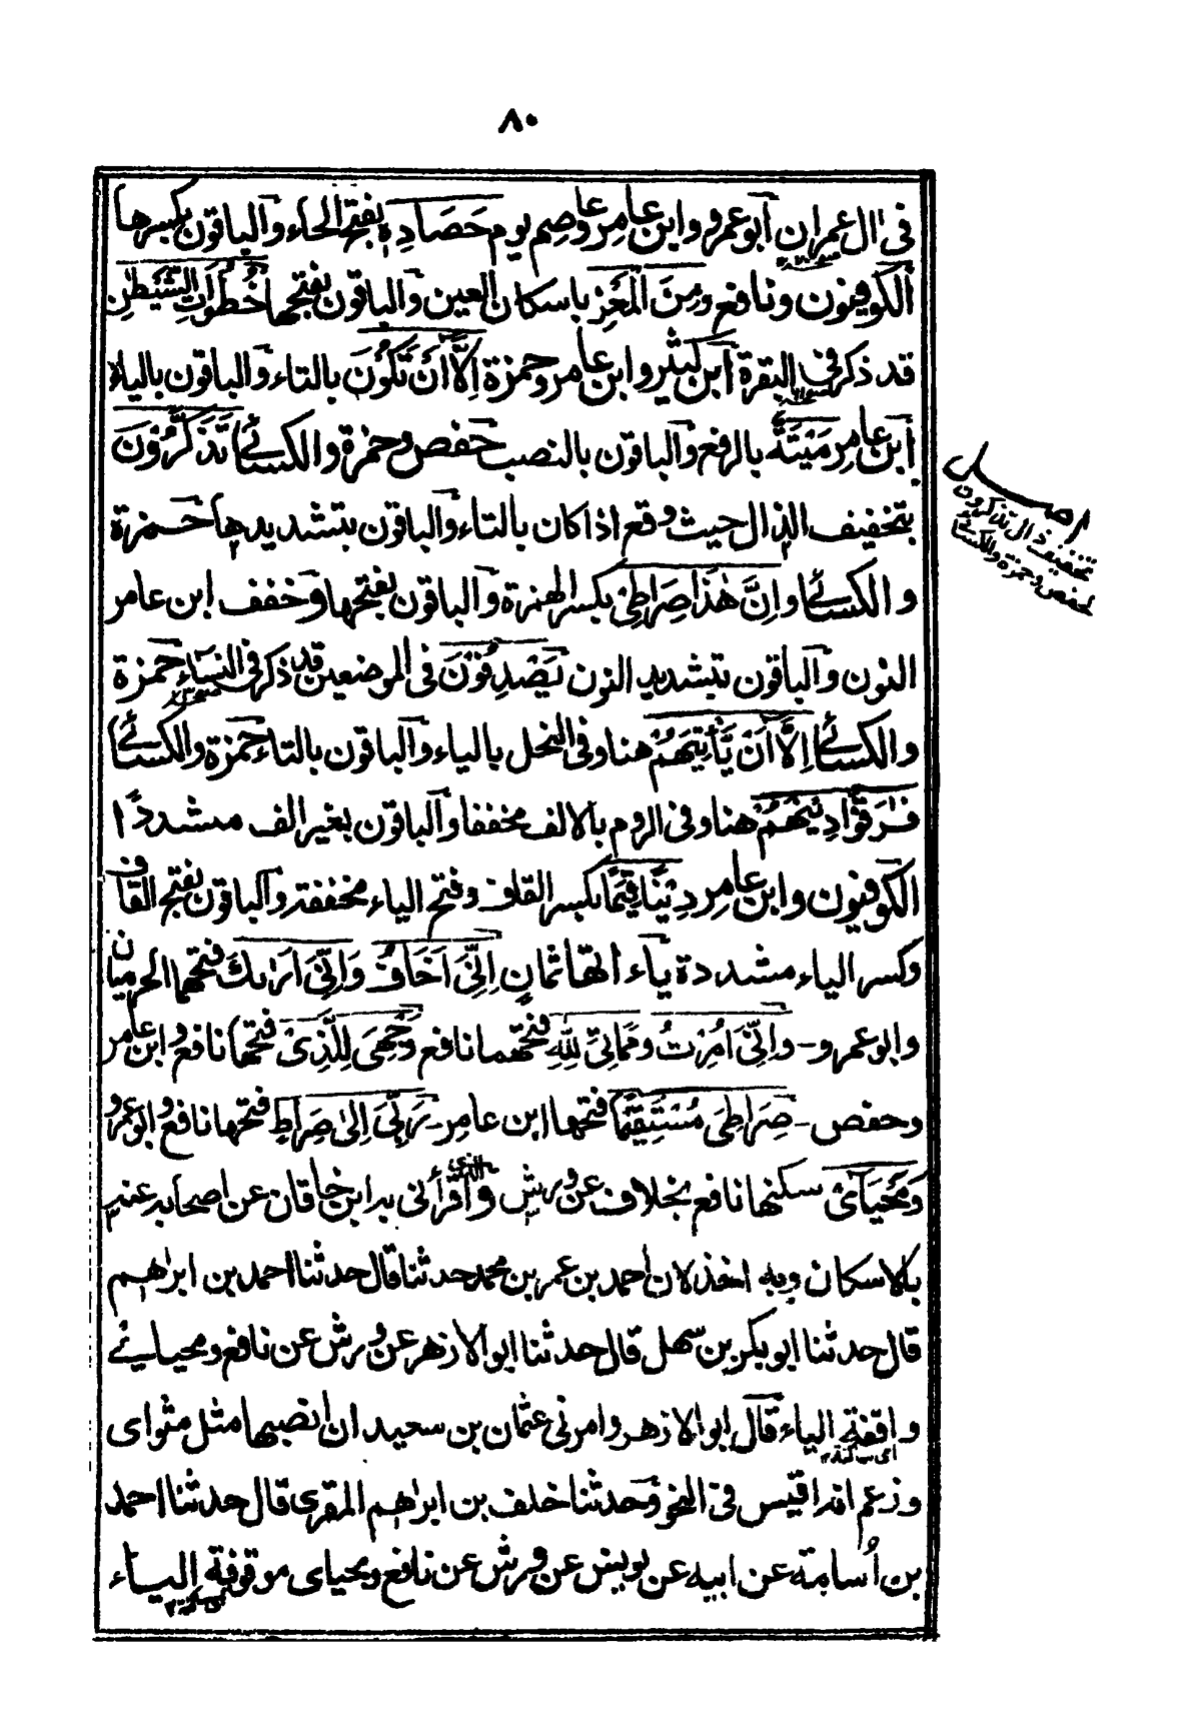 ٨٠
فى اٰل عمران ابو عمرو وابن عامر وعاصم يوم حَصَادِهٖ بفتح الحاء والباقون بكسرها
الكوفيون ونافع ومِنَ الْمَعْزِ باسكان العين والباقون بفتحها خُطُوَاتِ الشَّيْطٰنِ
قد ذكر فى البقرة ابن كثير وابن عامر وحمزة اِلَّا اَنْ تَكُوْنَ بالتاء والباقون بالياء
ابن عامر مَيْتَةٌ بالرفع والباقون بالنصب حفص وحمزة والكسائى تَذَكَّرُوْنَ
بتخفيف الذال حيث وقع اذا كان بالتاء والباقون بتشديدها حمزة
والكسائى وَاِنَّ هٰذَا صِرَاطِىْ بكسر الهمزة والباقون بفتحها وخفف ابن عامر
النون والباقون بتشديد النون يَصْدِفُوْنَ فى الموضعين قد ذكر فى النساء حمزة
والكسائى اِلَّا اَنْ يَّأْتِيَهُمُ هنا وفى النحل بالياء والباقون بالتاء حمزة والكسائى
فٰرَقُوْا دِيْنَهُمْ هنا وفى الروم بالالف مخففا والباقون بغير الف مشددًا
الكوفيون وابن عامر دِيْنًا قِيَمًا بكسر القاف وفتح الياء مخففة والباقون بفتح القاف
وكسر الياء مشددة ياٰء اتها ثمانٍ اِنِّىَ اَخَافُ وَاِنِّىَ اَرٰىكَ فتحهما الحرميان
وابو عمرو - وَاِنِّىَ اُمِرْتُ وَمَمَاتِىَ لِلّٰهِ فتحهما نافع وَجْهِىَ لِلَّذِىْ فتحها نافع وابن عامر
وحفص - صِرَاطِىَ مُسْتَقِيْمًا فتحها ابن عامر - رَبِّىَ اِلٰى صِرَاطٍ فتحها نافع وابو عمرو
وَمَحْيَاىَ سكنها نافع بخلاف عن ورش والذى اقرأنى به ابن خاقان عن اصحابه عنه
بالاسكان وبه اٰخذ لان احمد بن عمر بن محمد حدثنا قال حدثنا احمد بن ابراهيم
قال حدثنا ابو بكر بن سهل قال حدثنا ابو الازهر عن ورش عن نافع ومحياىْ
واقفة الياء قال ابو الازهر وامرنى عثمان بن سعيد ان انصبها مثل مثواى
وزعم انه اقيس فى النحو وحدثنا خلف بن ابراهيم المقرى قال حدثنا احمد
بن اُسامة عن ابيه عن يونس عن ورش عن نافع ومحياى موقوفة الياء
اصل
تخفيف ذال تذكرون
لحفص وحمزة والكسائى